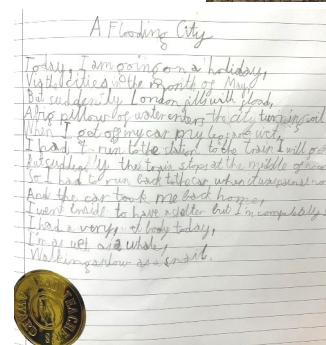 A Flooding City
Today, I am going on a holiday,
Visit cities in the month of May
But suddenly London fills with flood,
A big pillow of water enters the city, turning soil
When I get off my car my legs are wet,
I had to run to the station to the train I will
But suddenly the train stops at the middle of
So I had to run back to the car when it was
And the car took me back home,
I went inside to have a shelter but I'm completely
I had a very, body today,
I'm as wet as a whale,
Walking as low as a snail.
TEACHER